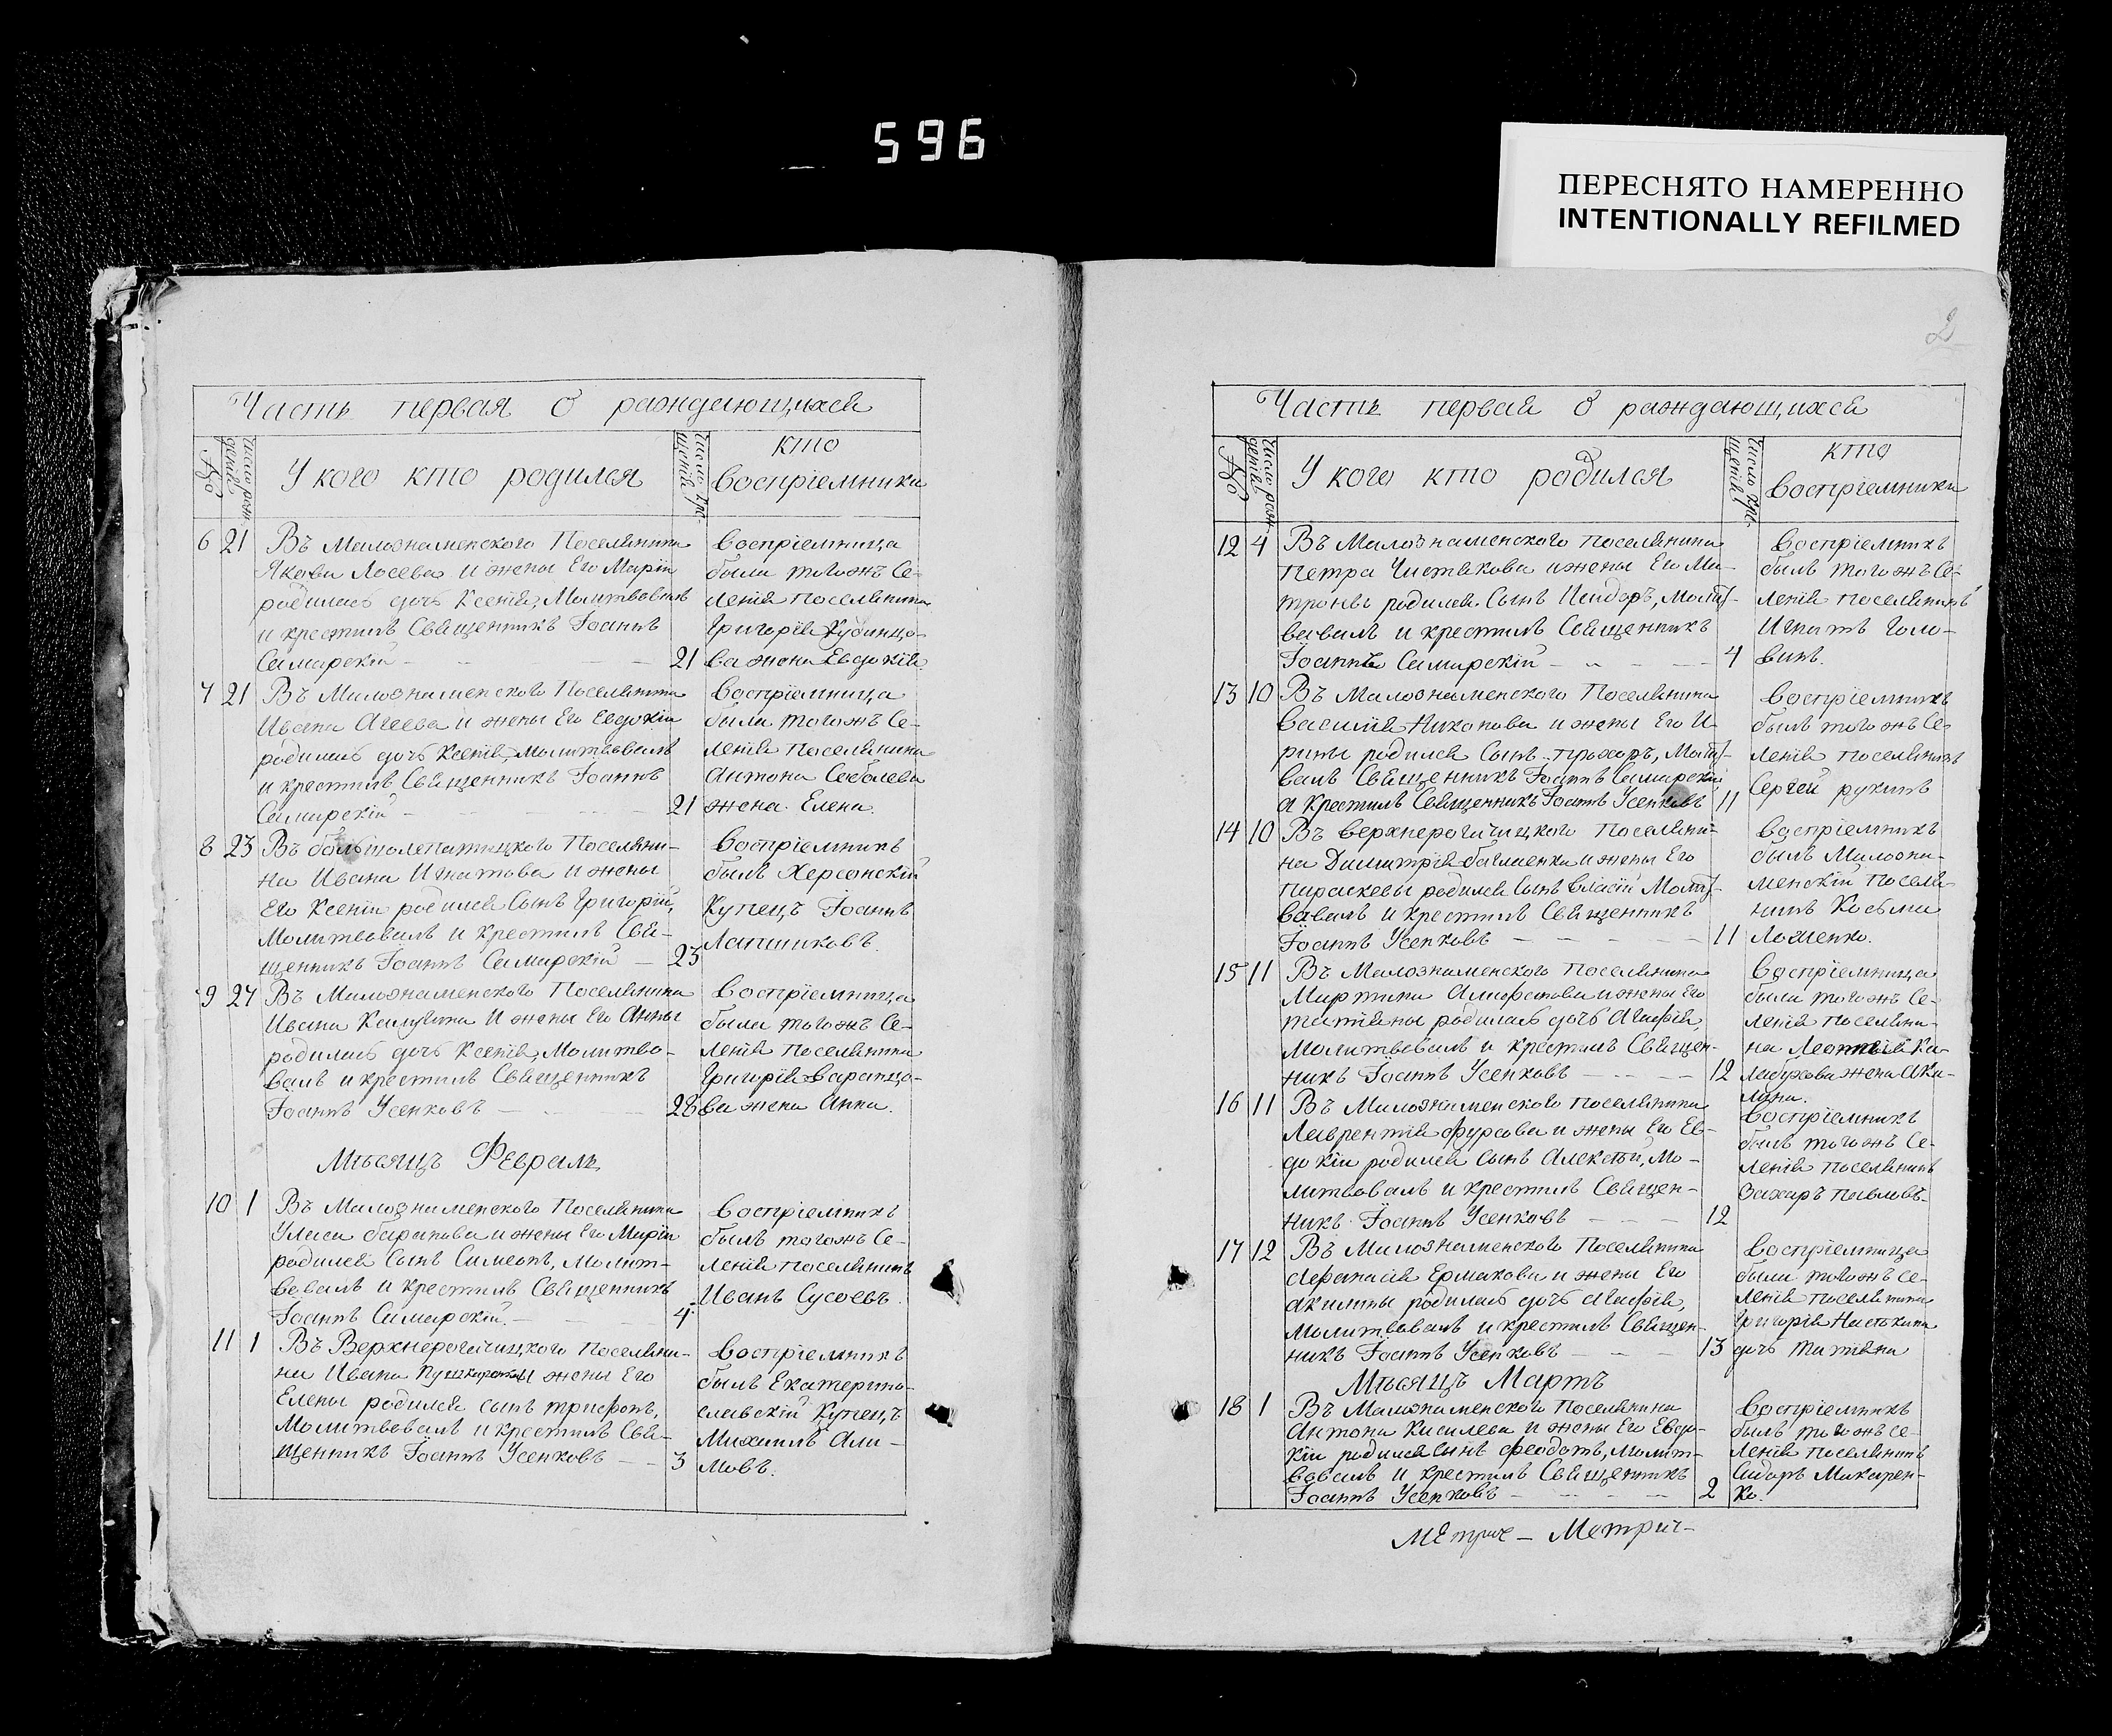 596
ПЕРЕСНЯТО НАМЕРЕННО
INTENTIONALLY REFILMED
Часть первая о раждающихся
№
Число рож-
деній
У кого кто родился
Число кре-
щеній
кто
воспріемники
6 21 Въ Малознаменского Поселянина
Якова Лосева и жены Его Маріи
родилась дочь Ксенія, Молитвовалъ
и крестилъ Священникъ Іоаннъ
Самарскій 21
воспріемница
была тогожъ Се-
ленія поселянина
Григорія Кубинцо-
ва жена Евдокія
7 21 Въ Малознаменского Поселянина
Ивана Агеева и жены Его Евдокіи
родилась дочь Ксенія, Молитвовалъ
и крестилъ Священникъ Іоаннъ
Самарскій 21
воспріемница
была тогожъ Се-
ленія поселянина
Антона Соболева
жена Елена.
8 23 Въ большолепатицкого Поселяни-
на Ивана Игнатова и жены
Его Ксеніи родился Сынъ Григорій,
Молитвовалъ и крестилъ Свя-
щенникъ Іоаннъ Самарскій 23
воспріемникъ
былъ Херсонскій
Купецъ Іоаннъ
Лапшиковъ.
9 27 Въ Малознаменского Поселянина
Ивана Калугина И жены Его Анны
родилась дочь Ксенія, Молитво-
валъ и крестилъ Священникъ
Іоаннъ Усенковъ 28
воспріемница
была тогожъ Се-
ленія поселянина
Григорія Варапцо-
ва жена Анна.
Мѣсяцъ Февраль
10 1 Въ Малознаменского Поселянина
Уласа барапова и жены Его Маріи
родился Сынъ Симеонъ, Молит-
вовалъ и крестилъ Священникъ
Іоаннъ Самарскій. 4.
воспріемникъ
былъ тогожъ Се-
ленія поселянинъ
Иванъ Сусоевъ.
11 1 Въ Верхнерогачицкого поселяни-
на Ивана и жены Его
Елены родился сынъ трифонъ,
Молитвовалъ и крестилъ Свя-
щенникъ Іоаннъ Усенковъ 3
воспріемникъ
былъ Екатерино-
славскій Купецъ
Михаилъ Али-
мовъ.
2
Часть первая о раждающихся
№
Число рож-
деній
У кого кто родился
Число кре-
щеній
кто
воспріемники
12 4 Въ Малознаменского поселянина
Петра Чистякова и жены Его Ма-
троны родился Сынъ Исидоръ, Молит-
вовалъ и крестилъ Священникъ
Іоаннъ Самарскій 4
воспріемникъ
былъ тогожъ Се-
ленія поселянинъ
Игнатъ Голо-
винъ.
13 10 Въ Малознаменского Поселянина
Василія Никонова и жены Его И-
рины родился Сынъ прохоръ, Молит-
валъ Священникъ Іоаннъ Самарскій
а Крестилъ Священникъ Іоаннъ Усенковъ 11
воспріемникъ
былъ тогожъ Се-
ленія поселянинъ
Сергей рукинъ
14 10 Въ верхнерогачицкого поселяни-
на Димитрія и жены Его
параскевы родился Сынъ Власій Молит-
вовалъ и крестилъ Священникъ
Іоаннъ Усенковъ 11
воспріемникъ
былъ Малозна-
менскій поселя-
нинъ Косьма
15 11 Въ Малознаменского поселянина
Мартина и жены Его
татіяны родилась дочь Агафія,
Молитвовалъ и крестилъ Священ-
никъ Іоаннъ Усенковъ 12
воспріемница
была тогожъ Се-
ленія поселяни-
на Леонтія Ка-
жена Аку-
лина.
16 11 Въ Малознаменского поселянина
Лаврентія Фурсова и жены Его Ев-
докіи родился сынъ Алексѣй, Мо-
литвовалъ и крестилъ Священ-
никъ Іоаннъ Усенковъ 12
воспріемникъ
былъ тогожъ Се-
ленія поселянинъ
Захаръ павловъ.
17 12 Въ Малознаменского Поселянина
Афанасія Ермакова и жены Его
акилины родилась дочь Агафія,
Молитвовалъ и крестилъ Священ-
никъ Іоаннъ Усенковъ 13
воспріемница
была тогожъ се-
ленія поселянина
Григорія
дочь татіяна
Мѣсяцъ Мартъ
18 1 Въ Малознаменского Поселянина
Антона Киселева и жены Его Евдо-
кіи родился сынъ феодотъ, молит-
вовалъ и крестилъ Священникъ
Іоаннъ Усенковъ 2
воспріемникъ
былъ тогожъ се-
ленія поселянинъ
Сидоръ Макарен-
ко.
Метрич-